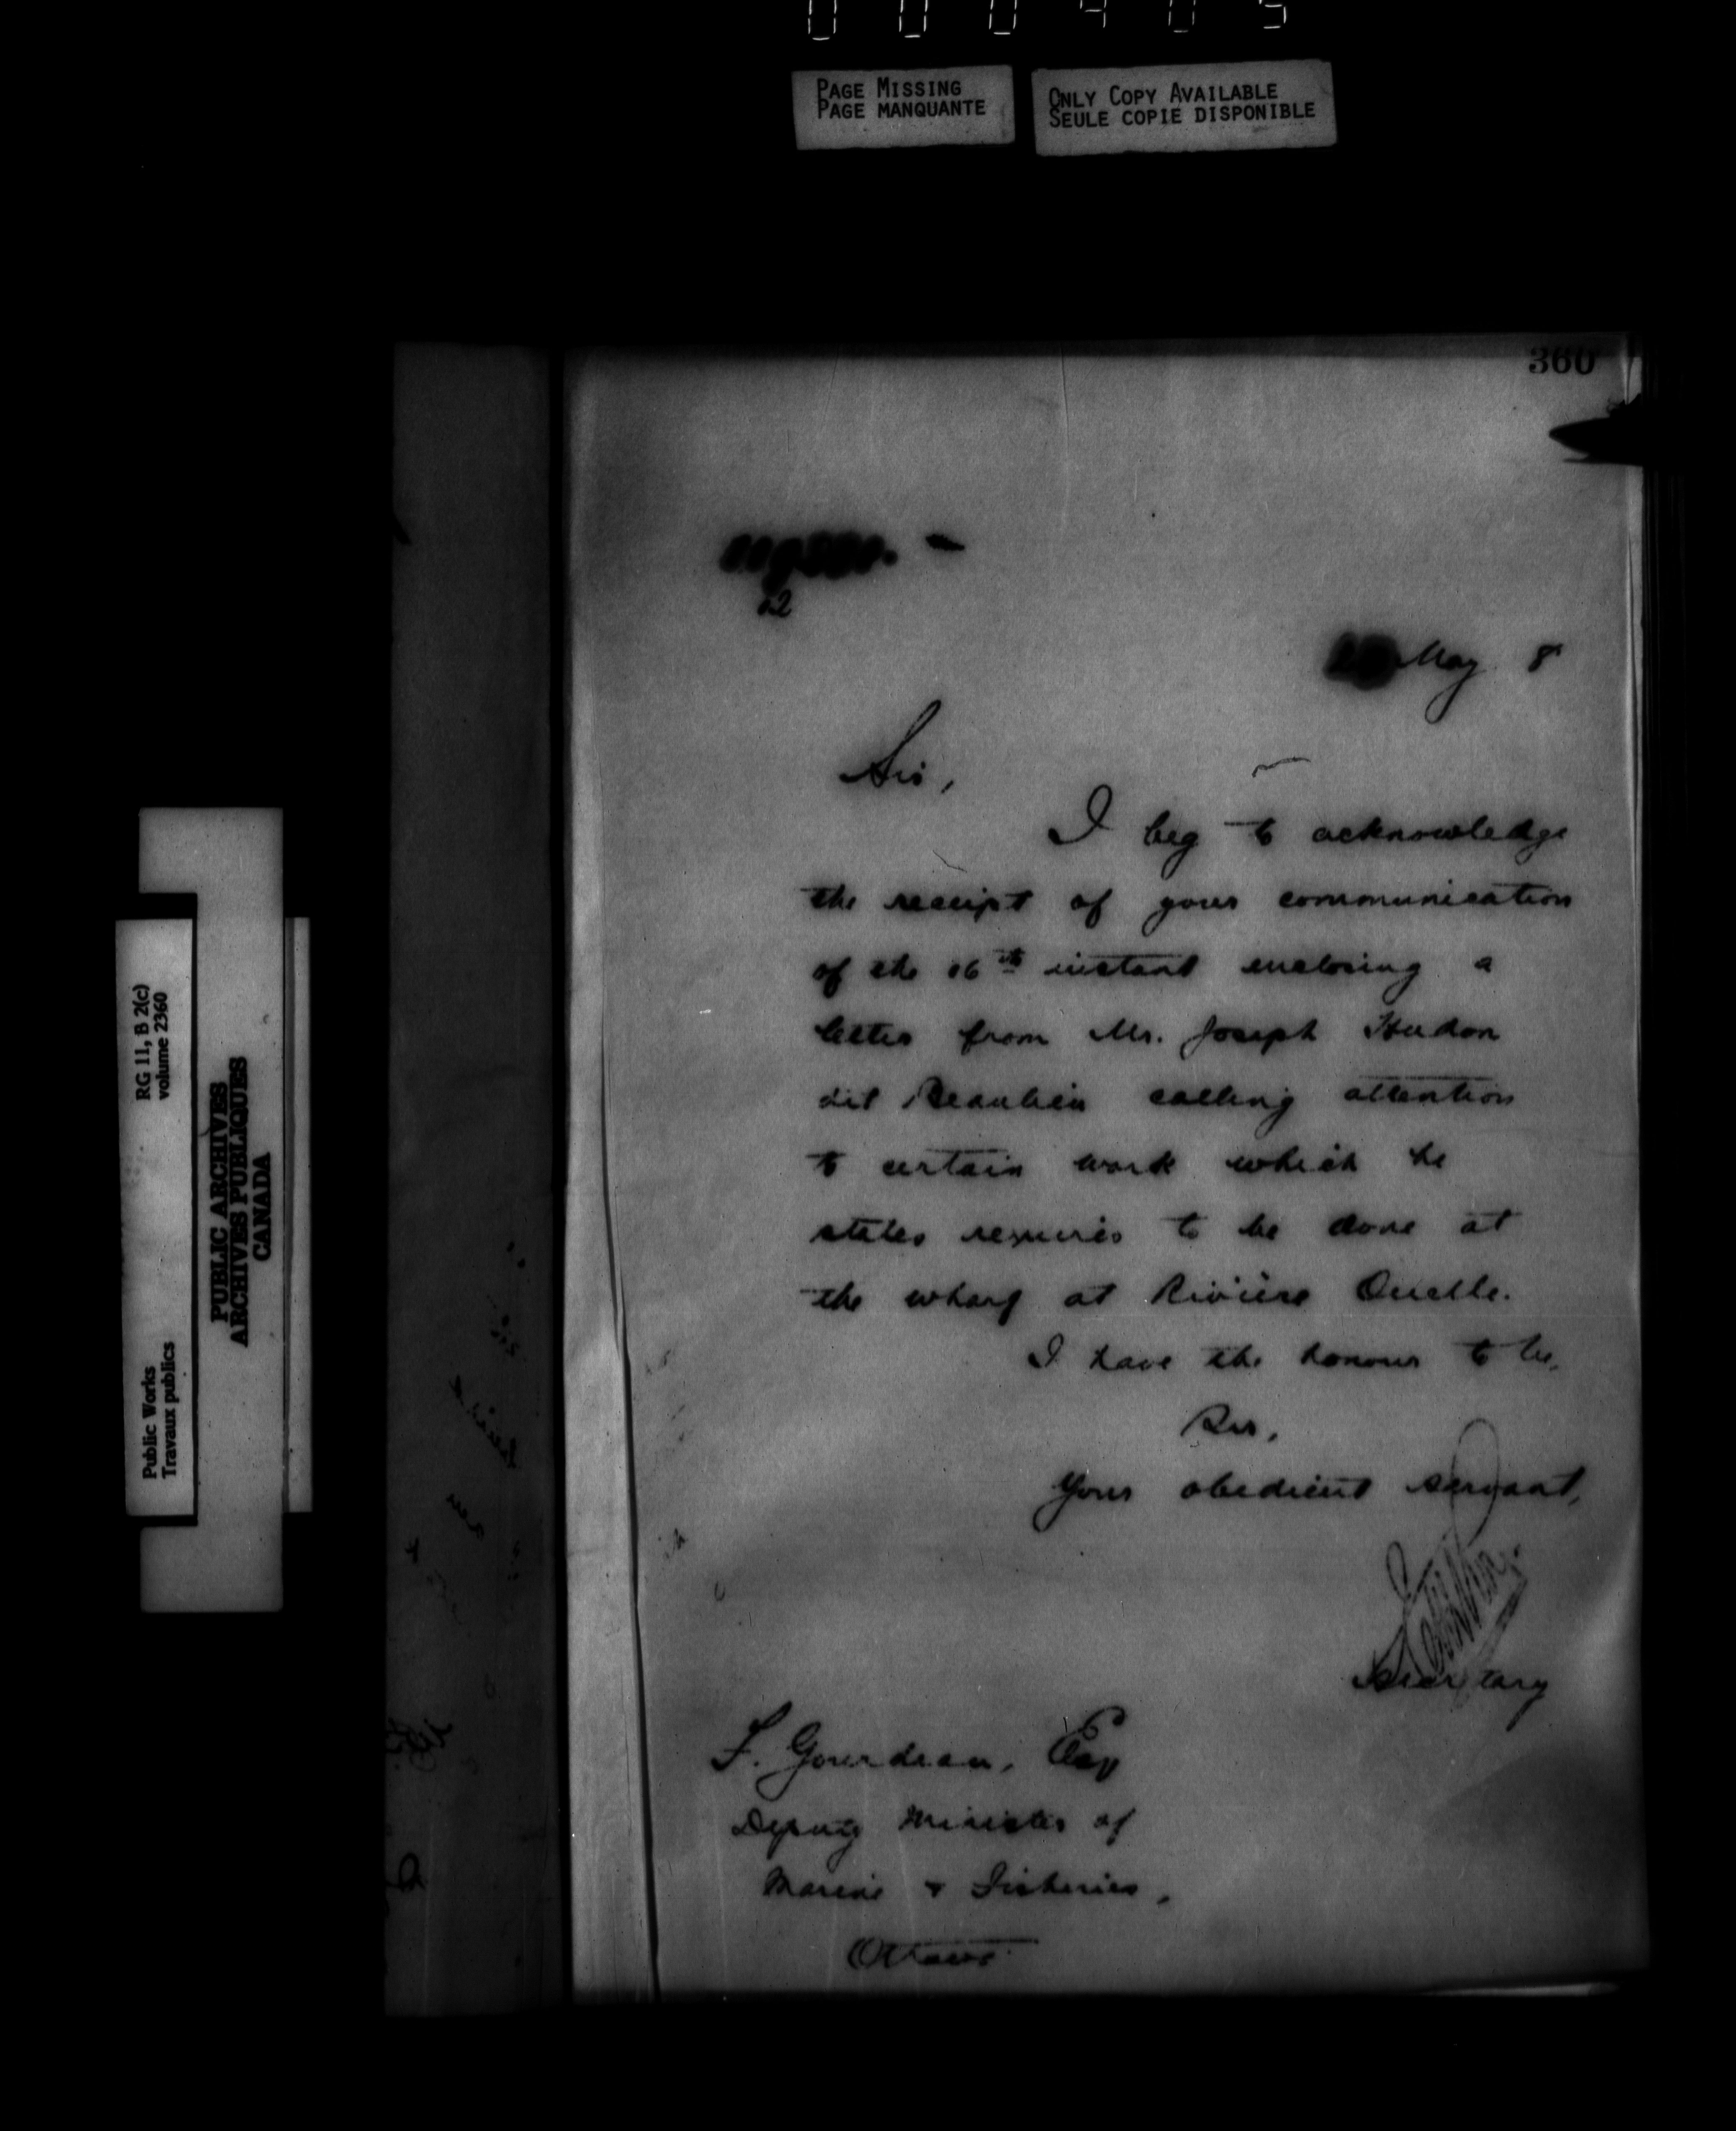 PAGE MISSING
PAGE MANQUANTE
ONLY COPY AVAILABLE
SEULE COPIE DISPONIBLE
360
22
May 8
Sir,
I beg to acknowledge
the receipt of your communication
of the 16th instant enclosing a
letter from Mr. Joseph Hudon
dit Beaulieu calling attention
to certain work which he
states requires to be done at
the wharf at Rivière Ouelle.
I have the honour to be,
Sir,
Your obedient servant,
Secretary
F. Gourdeau, Esq
Deputy Minister of
Marine & Fisheries,
Ottawa
RG 11, B 2(c)
volume 2360
Public Works
Travaux publics
PUBLIC ARCHIVES
ARCHIVES PUBLIQUES
CANADA